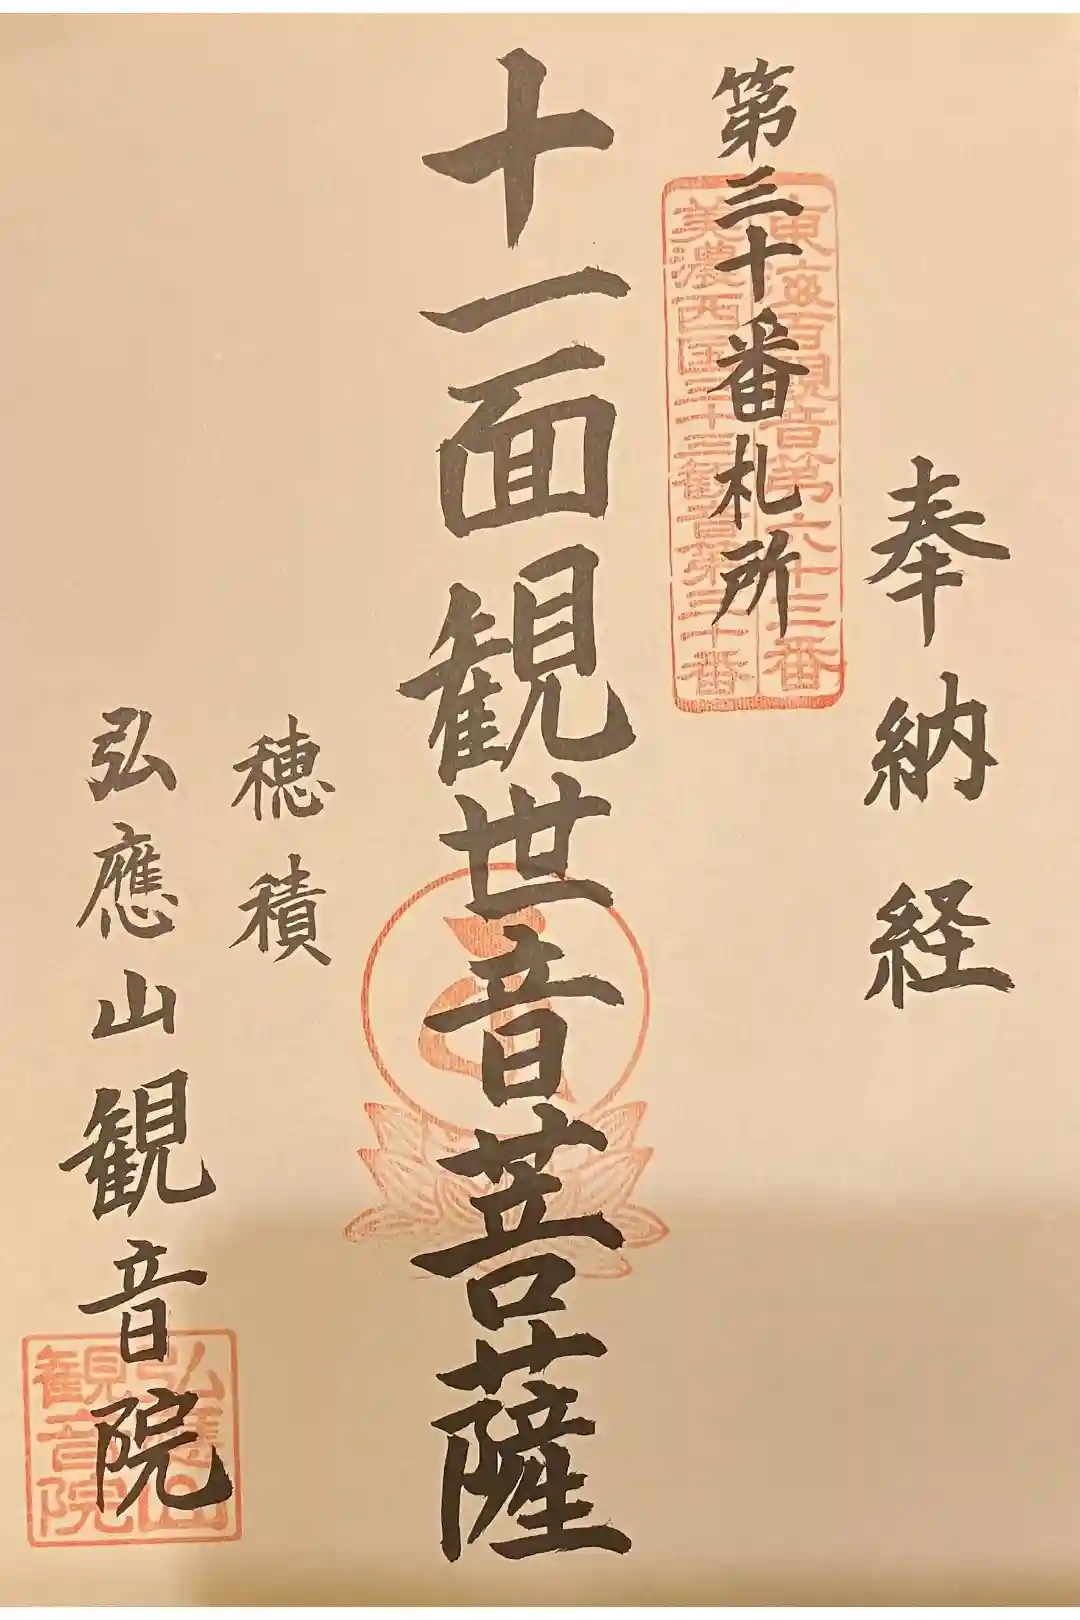 奉納経
第三十番札所
東海百観音第六十三番
美濃西国三十三観音第三十番
十一面観世音菩薩
穂積
弘應山観音院
弘應山
観音院